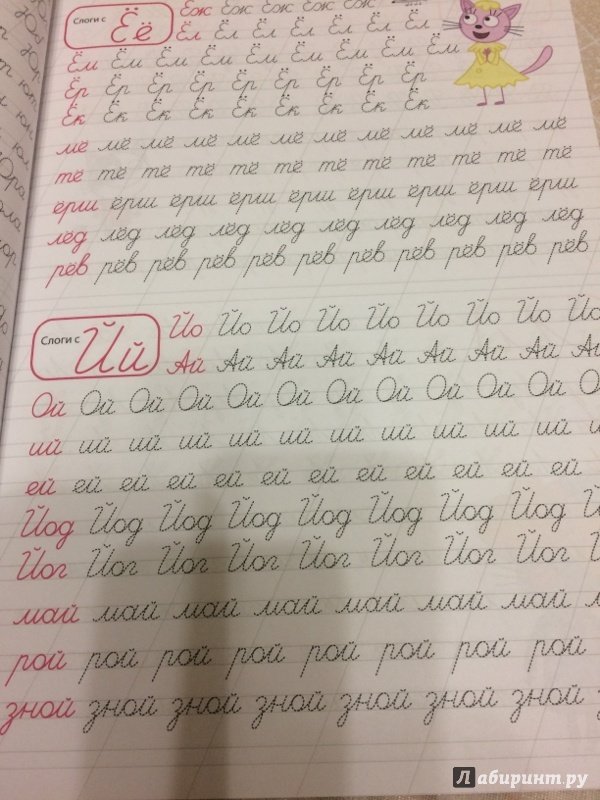 Слоги с Ёё
Ёж Ёж Ёж Ёж Ёж
Ёл Ёл Ёл Ёл Ёл Ёл Ёл
Ём Ём Ём Ём Ём Ём Ём Ём Ём
Ёр Ёр Ёр Ёр Ёр Ёр Ёр Ёр Ёр
Ёк Ёк Ёк Ёк Ёк Ёк Ёк Ёк Ёк
мё мё мё мё мё мё мё мё мё мё мё
тё тё тё тё тё тё тё тё тё тё тё
ёрш ёрш ёрш ёрш ёрш ёрш ёрш ёрш ёрш
лёд лёд лёд лёд лёд лёд лёд лёд лёд лёд
рёв рёв рёв рёв рёв рёв рёв рёв рёв рёв рёв
Слоги с Йй
Йо Йо Йо Йо Йо Йо Йо Йо Йо
Ай Ай Ай Ай Ай Ай Ай Ай
Ой Ой Ой Ой Ой Ой Ой Ой Ой Ой Ой
ий ий ий ий ий ий ий ий ий ий ий
ей ей ей ей ей ей ей ей ей ей ей ей
Йод Йод Йод Йод Йод Йод Йод Йод
Йог Йог Йог Йог Йог Йог Йог Йог
май май май май май май май
рой рой рой рой рой рой рой рой
зной зной зной зной зной зной зной
Лабиринт.ру